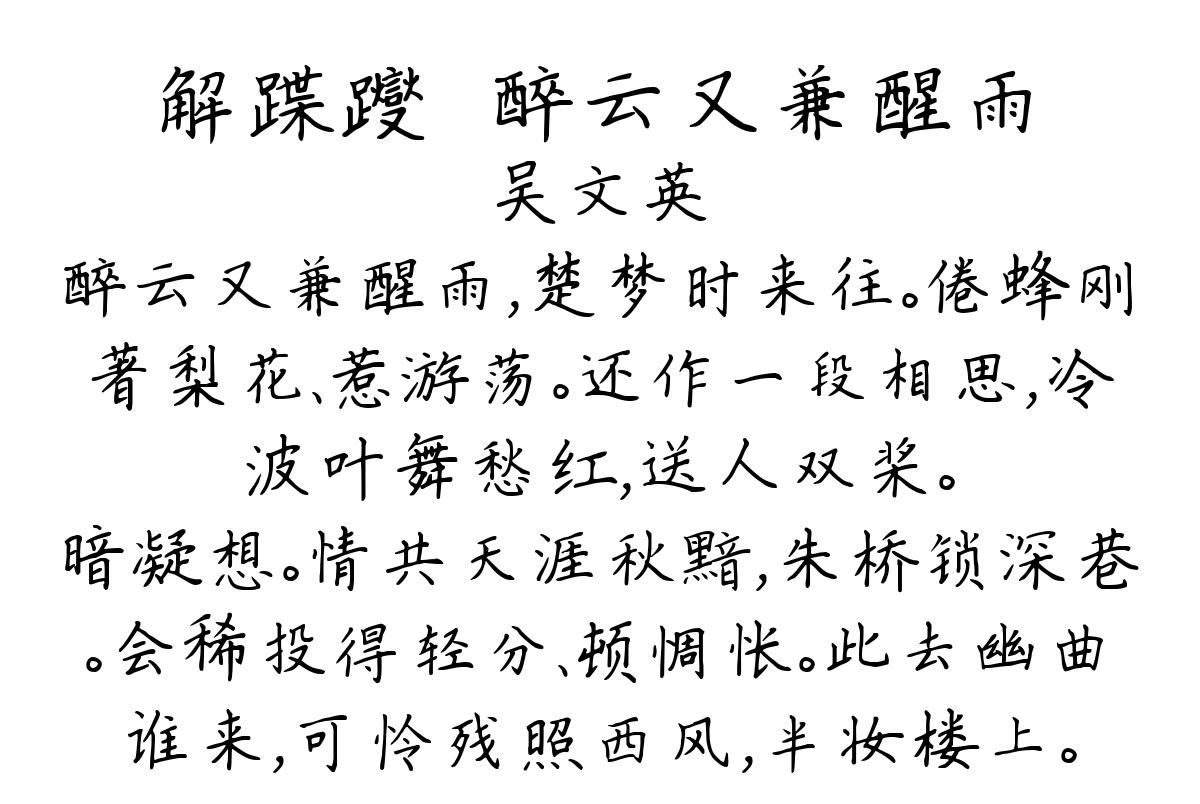 解蹀躞 醉云又兼醒雨
吴文英
醉云又兼醒雨,楚梦时来往。倦蜂刚
著梨花、惹游荡。还作一段相思,冷
波叶舞愁红,送人双桨。
暗凝想。情共天涯秋黯,朱桥锁深巷
。会稀投得轻分、顿惆怅。此去幽曲
谁来,可怜残照西风,半妆楼上。